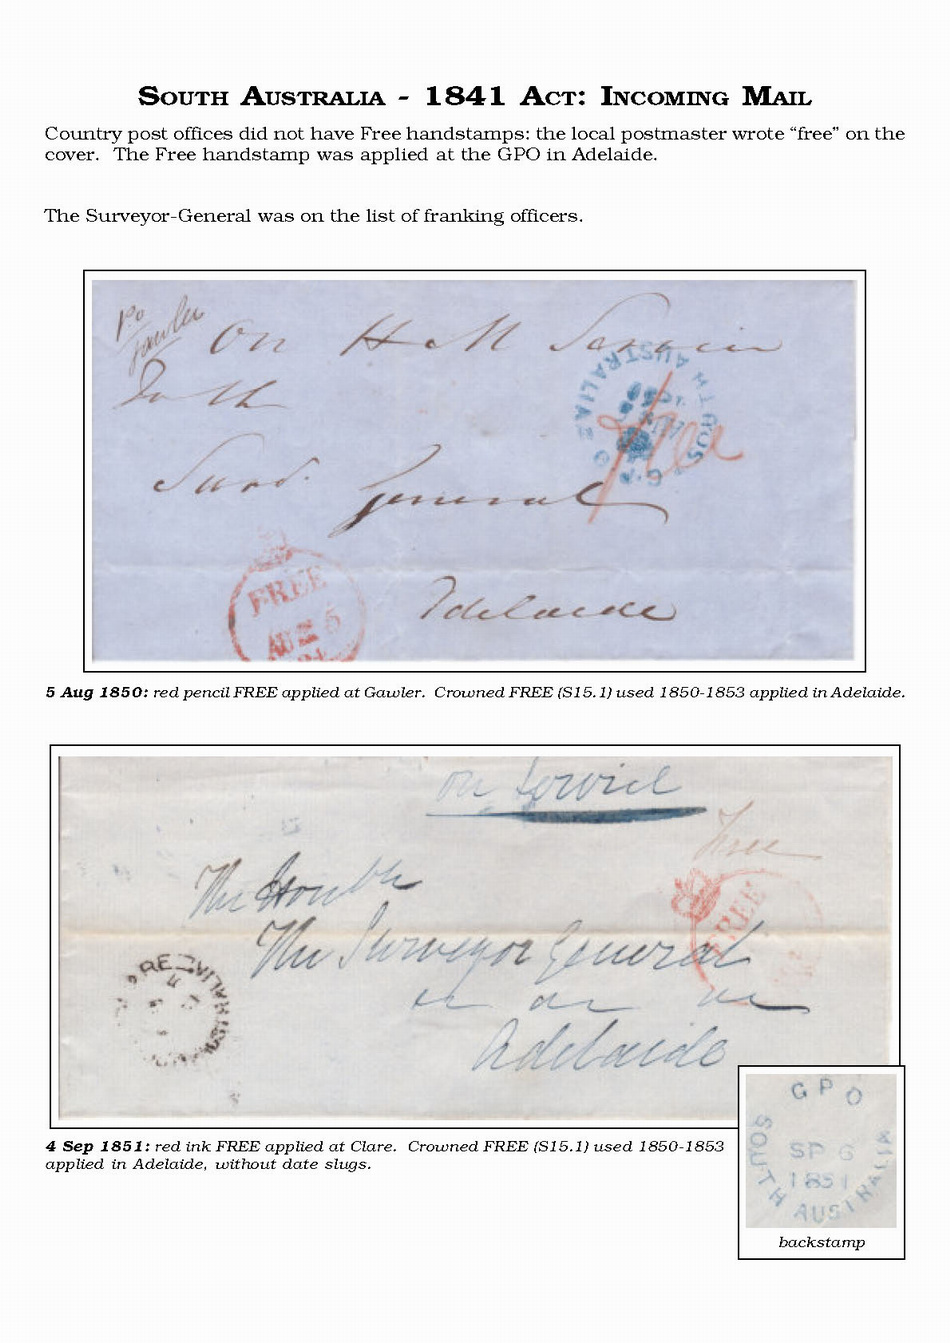 South Australia - 1841 Act: Incoming Mail
Country post offices did not have Free handstamps: the local postmaster wrote “free” on the
cover. The Free handstamp was applied at the GPO in Adelaide.
The Surveyor-General was on the list of franking officers.
Po
Gawler
On H M Service
To the
SOUTH AUSTRALIA
G.P.O
Free
Surv. General
FREE
AU 5
Adelaide
5 Aug 1850: red pencil FREE applied at Gawler. Crowned FREE (S15.1) used 1850-1853 applied in Adelaide.
on Service
Free
The Honble
FREE
The Surveyor General
Adelaide
4 Sep 1851: red ink FREE applied at Clare. Crowned FREE (S15.1) used 1850-1853
applied in Adelaide, without date slugs.
GPO
SP 6
1851
SOUTH AUSTRALIA
backstamp